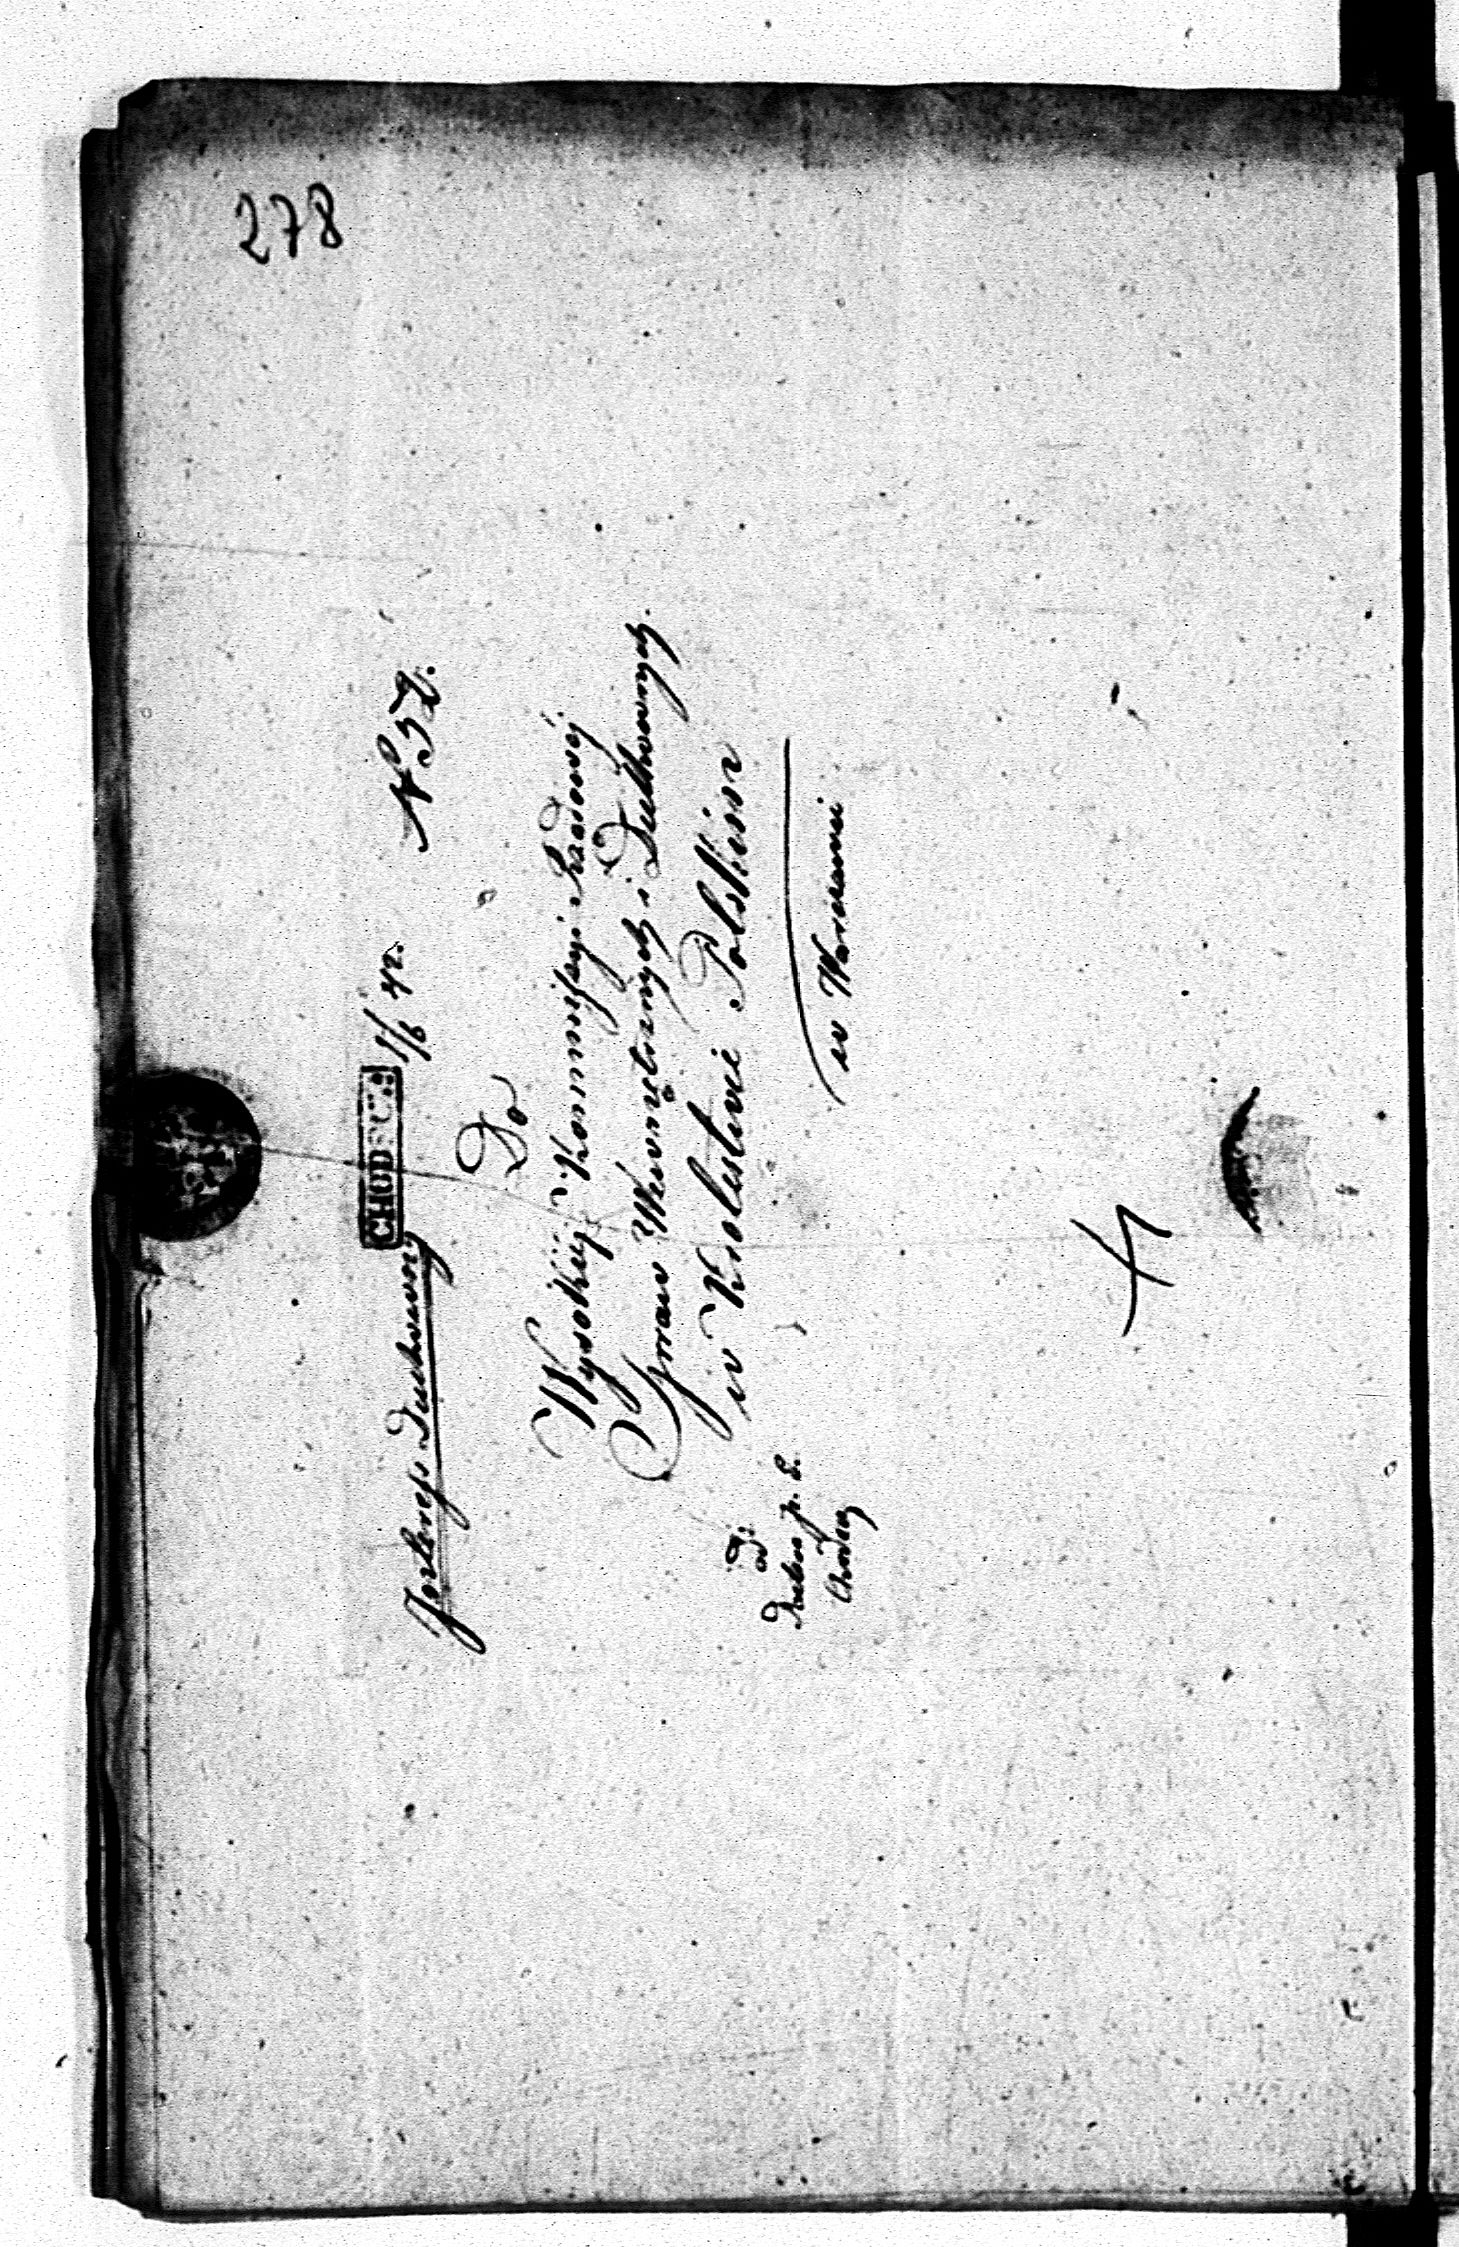 278
Interess Duchowny
CHODECZ
1/6 42.
N 52.
Do
Wysokiéj Kommissyi Rządowéj
Spraw Wewnętrznych i Duchownych
w Królestwie Polskiem
w Warszawie
od
p. S.
Chodecz
4